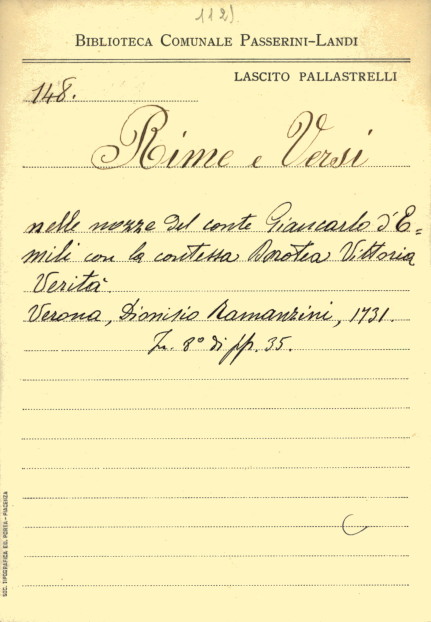 112)
BIBLIOTECA COMUNALE PASSERINI-LANDI
LASCITO PALLASTRELLI
148.
Rime e Versi
nelle nozze del conte Giancarlo d'E=
mili con la contessa Dorotea Vittoria
Verità.
Verona, Dionisio Ramanzini, 1731.
In 8° di pp. 35.
SOC. TIPOGRAFICA ED. PORTA - PIACENZA